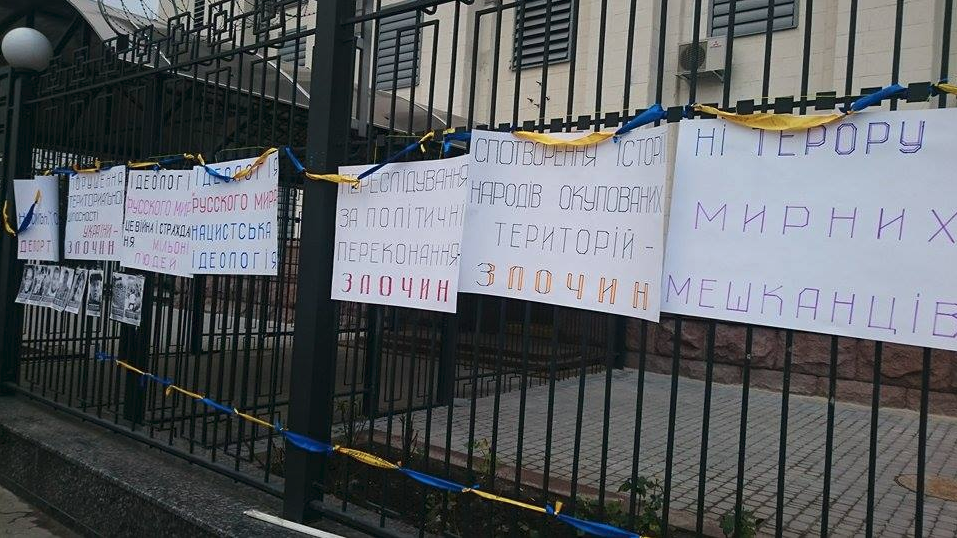 ДЕПОРТ
ПОРУШЕННЯ
ТЕРИТОРІАЛЬНОЇ
ЦІЛІСНОСТІ
УКРАЇНИ -
ЗЛОЧИН
ІДЕОЛОГІ
РУССКОГО МИР
ЦЕ ВІЙНА І СТРАЖДА
НЯ МІЛЬЙОНІ
ЛЮДЕЙ
ІДЕОЛОГІЯ
РУССКОГО МИРА
НАЦИСТСЬКА
ІДЕОЛОГІЯ
ПЕРЕСЛІДУВАННЯ
ЗА ПОЛІТИЧНІ
ПЕРЕКОНАННЯ
ЗЛОЧИН
СПОТВОРЕННЯ ІСТОРІ
НАРОДІВ ОКУПОВАНИХ
ТЕРИТОРІЙ -
ЗЛОЧИН
НІ ТЕРОРУ
МИРНИХ
МЕШКАНЦІВ